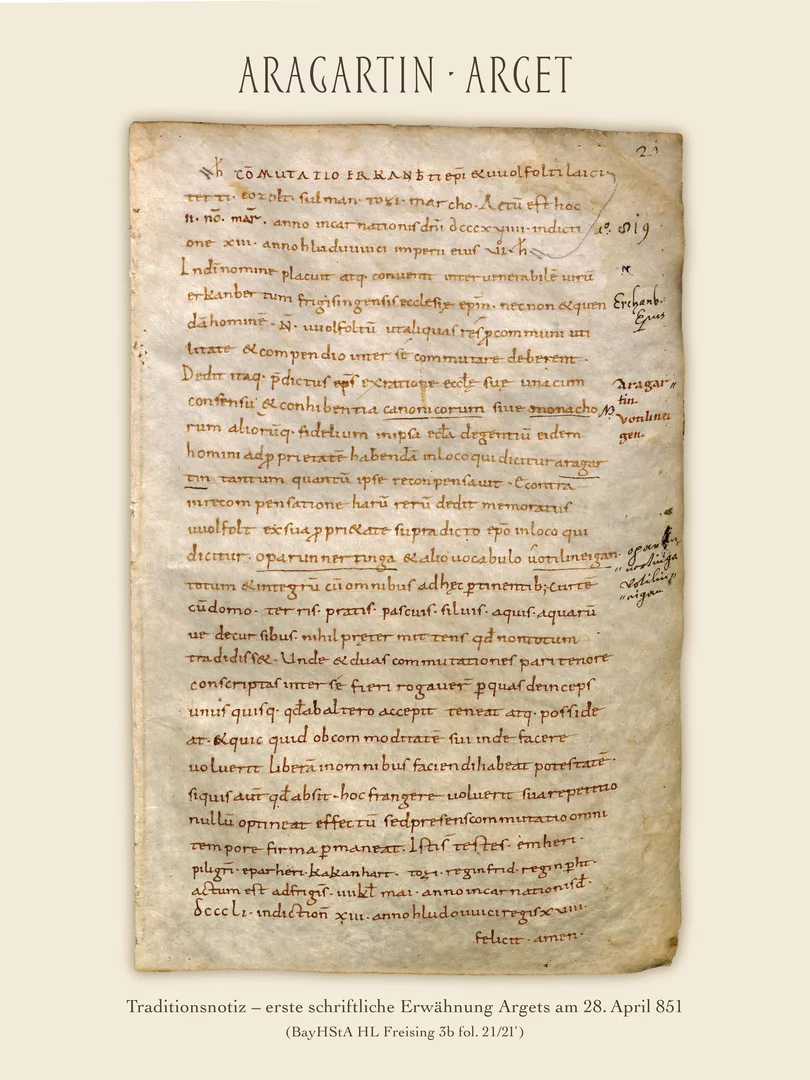 ARAGARTIN · ARGET
21
COMUTATIO ERKANBti epi & uuolfolti laici
ii. no. mar. anno incarnationis dni dcccxviiii. indicti
aº. 819
one xii. anno hludiuuici imperii eius
Indi nomine placuit atq. convenit inter venerabilē virū
erkanbertum frigisingensis ecclesiȩ epm. necnon & quen
Erchanb.
Epus
dā homine. N. uuolfoltū ut aliquas res p communi uti
litate & compendio inter se commutare deberent.
Dedit itaq. pdictus eps ex ratione eccle suȩ una cum
Aragar"
tin
consensu & conhibentia canonicorum siue monacho
votilinei
gen.
rum aliorūq. fidelium in ipsa eclа degentiū eidem
homini ad pprietatē habendā in loco qui dicitur aragar
tin tantum quantū ipse reconpensauit. Econtra
in recompensatione harū rerū dedit memoratus
uuolfolt ex sua ppri&ate supradicto epo in loco qui
dicitur. oparunnertinga & alio uocabulo uotilineigan.
totum & integrū cū omnibus ad hȩc ptinentib; curte
cū domo. terris. pratis. pascuis. siluis. aquis. aquarū
ue decursibus. nihil prȩtermittens qd non totum
tradidiss&. Unde & duas commutationes pari tenore
conscriptas inter se fieri rogauer pquas deinceps
unusquisq. qd ab altero accepit teneat atq. posside
at. & quicquid ob commoditatē sui inde facere
uoluerit liberā in omnibus faciendi habeat potestatē.
siquis aut qd absit. hoc frangere uoluerit sua repetitio
nullū optineat effectū sed presens commutatio omni
tempore firma pmaneat. Istis testes. emheri.
piligri. eparheri. kakanhart. tozi. reginfrid. reginpht.
actum est ad frigis. iiii kl mai. anno incarnationis d.
dcccli. indiction xiiii. anno hludouuici regis xviiii.
felicit. amen.
Traditionsnotiz – erste schriftliche Erwähnung Argets am 28. April 851
(BayHStA HL Freising 3b fol. 21/21')